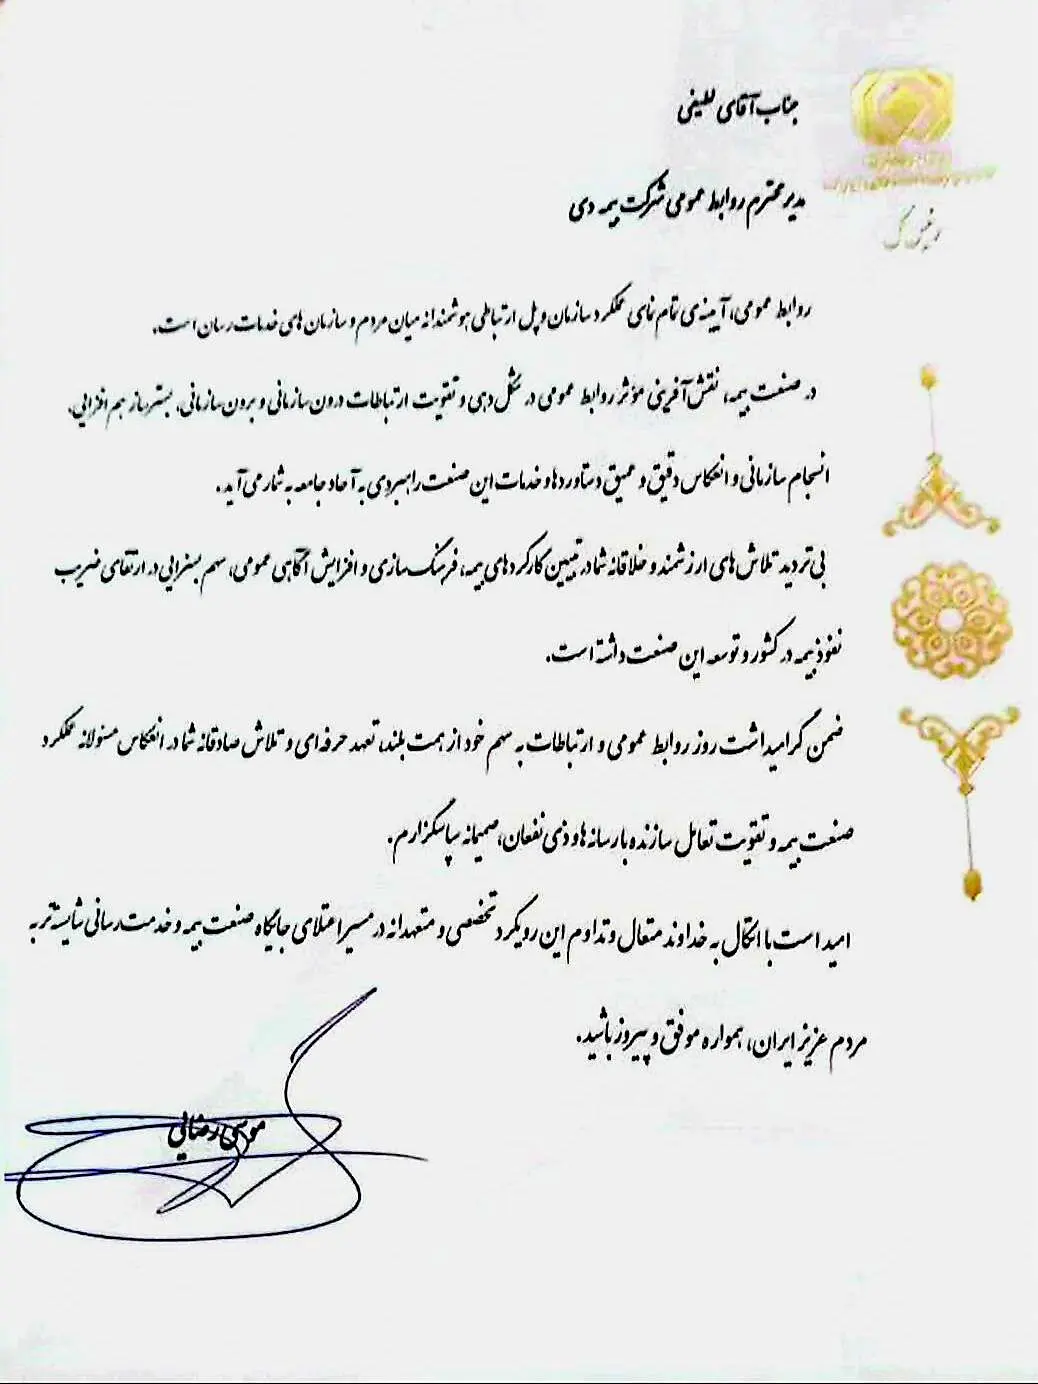 جناب آقای لطیفی
مدیر محترم روابط عمومی شرکت بیمه دی
رئیس کل
روابط عمومی، آیینه‌ی تمام نمای عملکرد سازمان و پل ارتباطی هوشمندانه میان مردم و سازمان‌های خدمات رسان است.
در صنعت بیمه، نقش‌آفرینی مؤثر روابط عمومی در شکل دهی و تقویت ارتباطات درون سازمانی و برون سازمانی، بسترساز هم افزایی،
انسجام سازمانی و انعکاس دقیق و عمیق دستاوردها و خدمات این صنعت راهبردی به آحاد جامعه به شمار می آید.
بی تردید تلاش های ارزشمند و خلاقانه شما در تبیین کارکردهای بیمه، فرهنگ سازی و افزایش آگاهی عمومی، سهم بسزایی در ارتقای ضریب
نفوذ بیمه در کشور و توسعه این صنعت داشته است.
ضمن گرامیداشت روز روابط عمومی و ارتباطات به سهم خود از همت بلند، تعهد حرفه ای و تلاش صادقانه شما در انعکاس مسئولانه عملکرد
صنعت بیمه و تقویت تعامل سازنده با رسانه ها و ذی نفعان، صمیمانه سپاسگزارم.
امید است با اتکال به خداوند متعال و تداوم این رویکرد تخصصی و متعهدانه در مسیر اعتلای جایگاه صنعت بیمه و خدمت رسانی شایسته تر به
مردم عزیز ایران، همواره موفق و پیروز باشید.
موسی رضائی